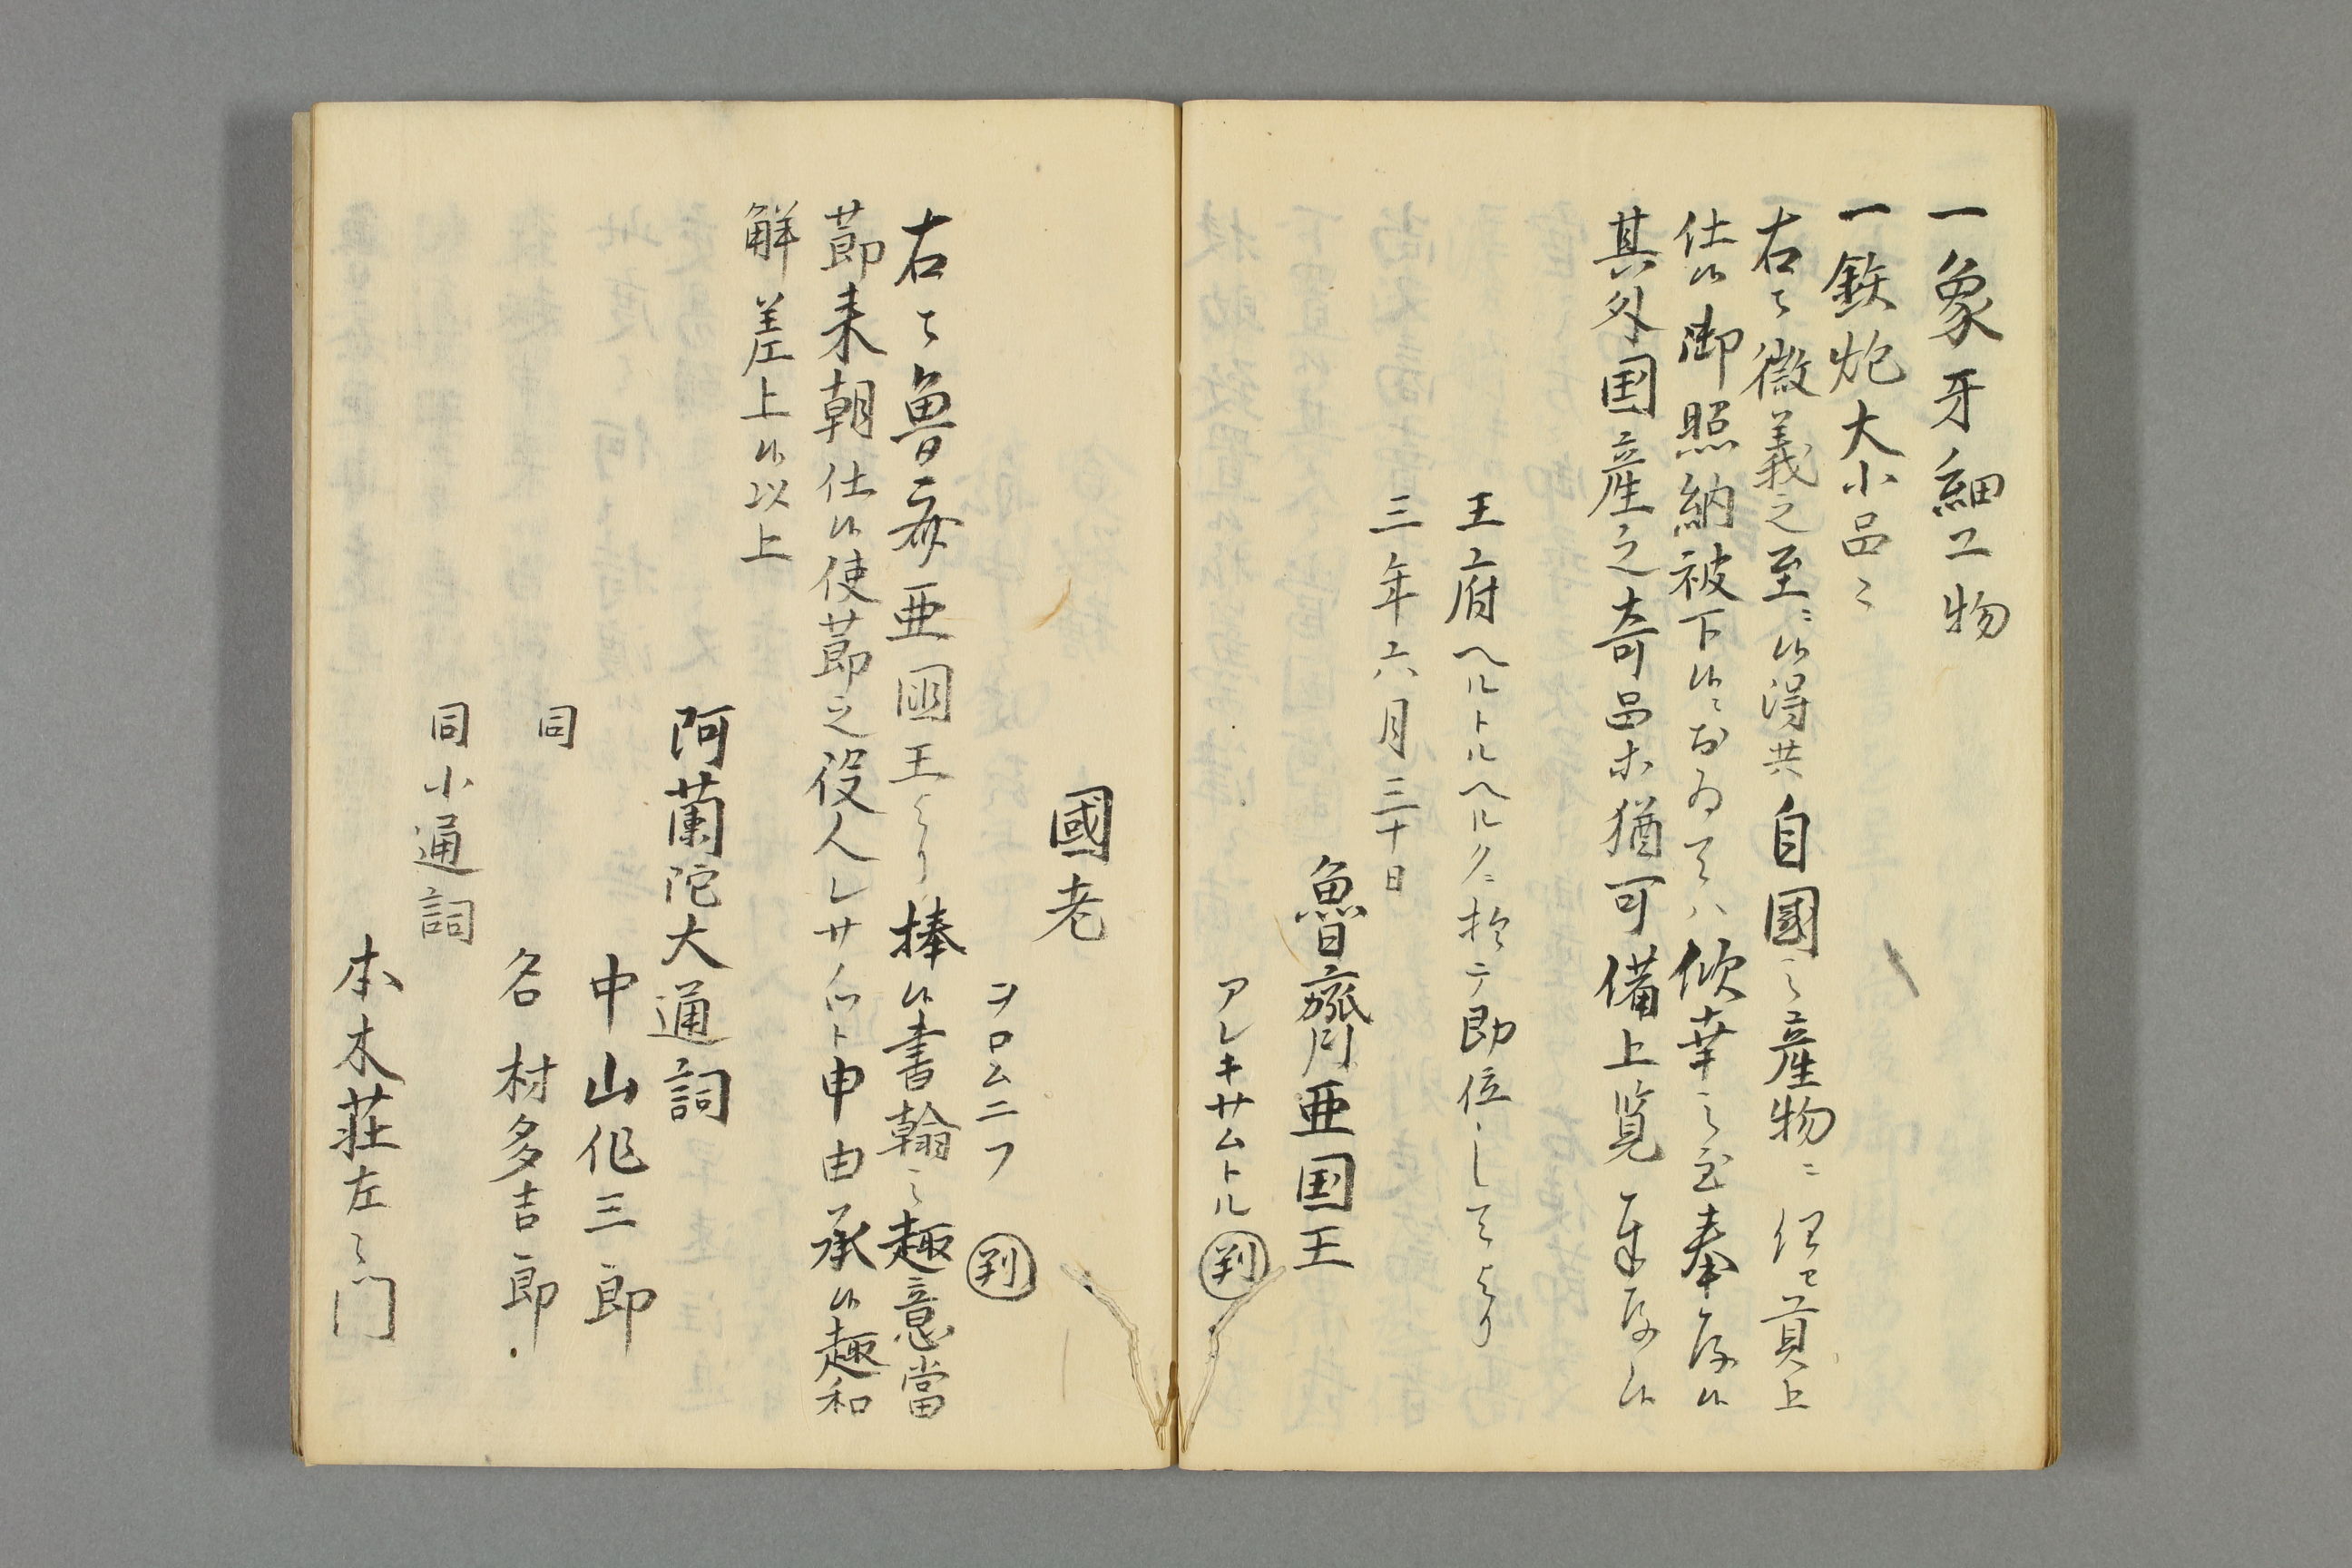 一象牙細工物
一鉄炮大小品々
右者微義之至ニ候得共自國之産物ニ任セ貢上
仕候御照納被下候ニおゐてハ倖幸之至奉存候
其外国産之奇品等猶可備上覧奉存候
王府ヘルトルヘルクニ於テ即位してより
三年六月三十日
魯齊亜国王
アレキサムトル 判
國老
ヲロムニフ 判
右者魯齊亜國王より捧候書翰之趣意當
節来朝仕候使節之役人レサノツト申由承候趣和
解差上候以上
阿蘭陀大通詞
中山作三郎
同
名村多吉郎
同小通詞
本木荘左衛門